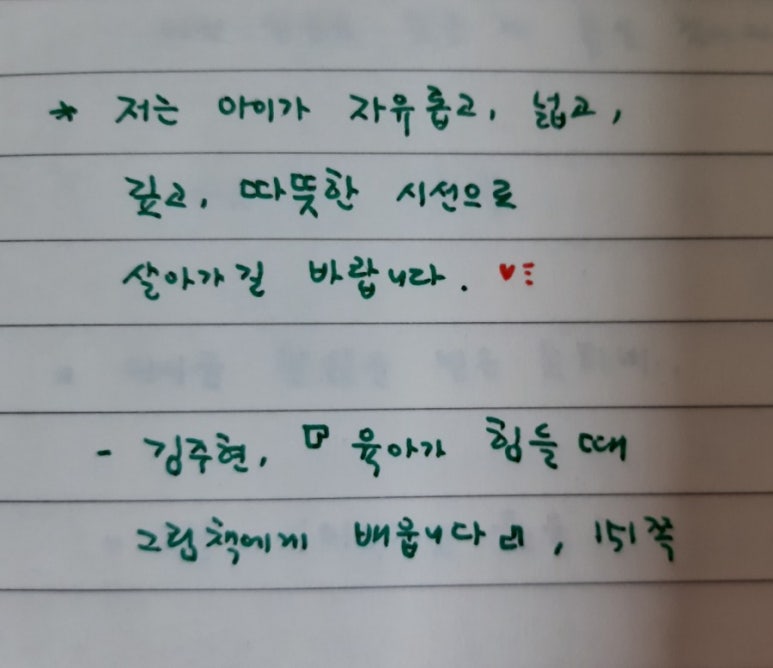 * 저는 아이가 자유롭고, 넓고,
깊고, 따뜻한 시선으로
살아가길 바랍니다. ♥
- 김주현, 『육아가 힘들 때
그림책에게 배웁니다』, 151쪽